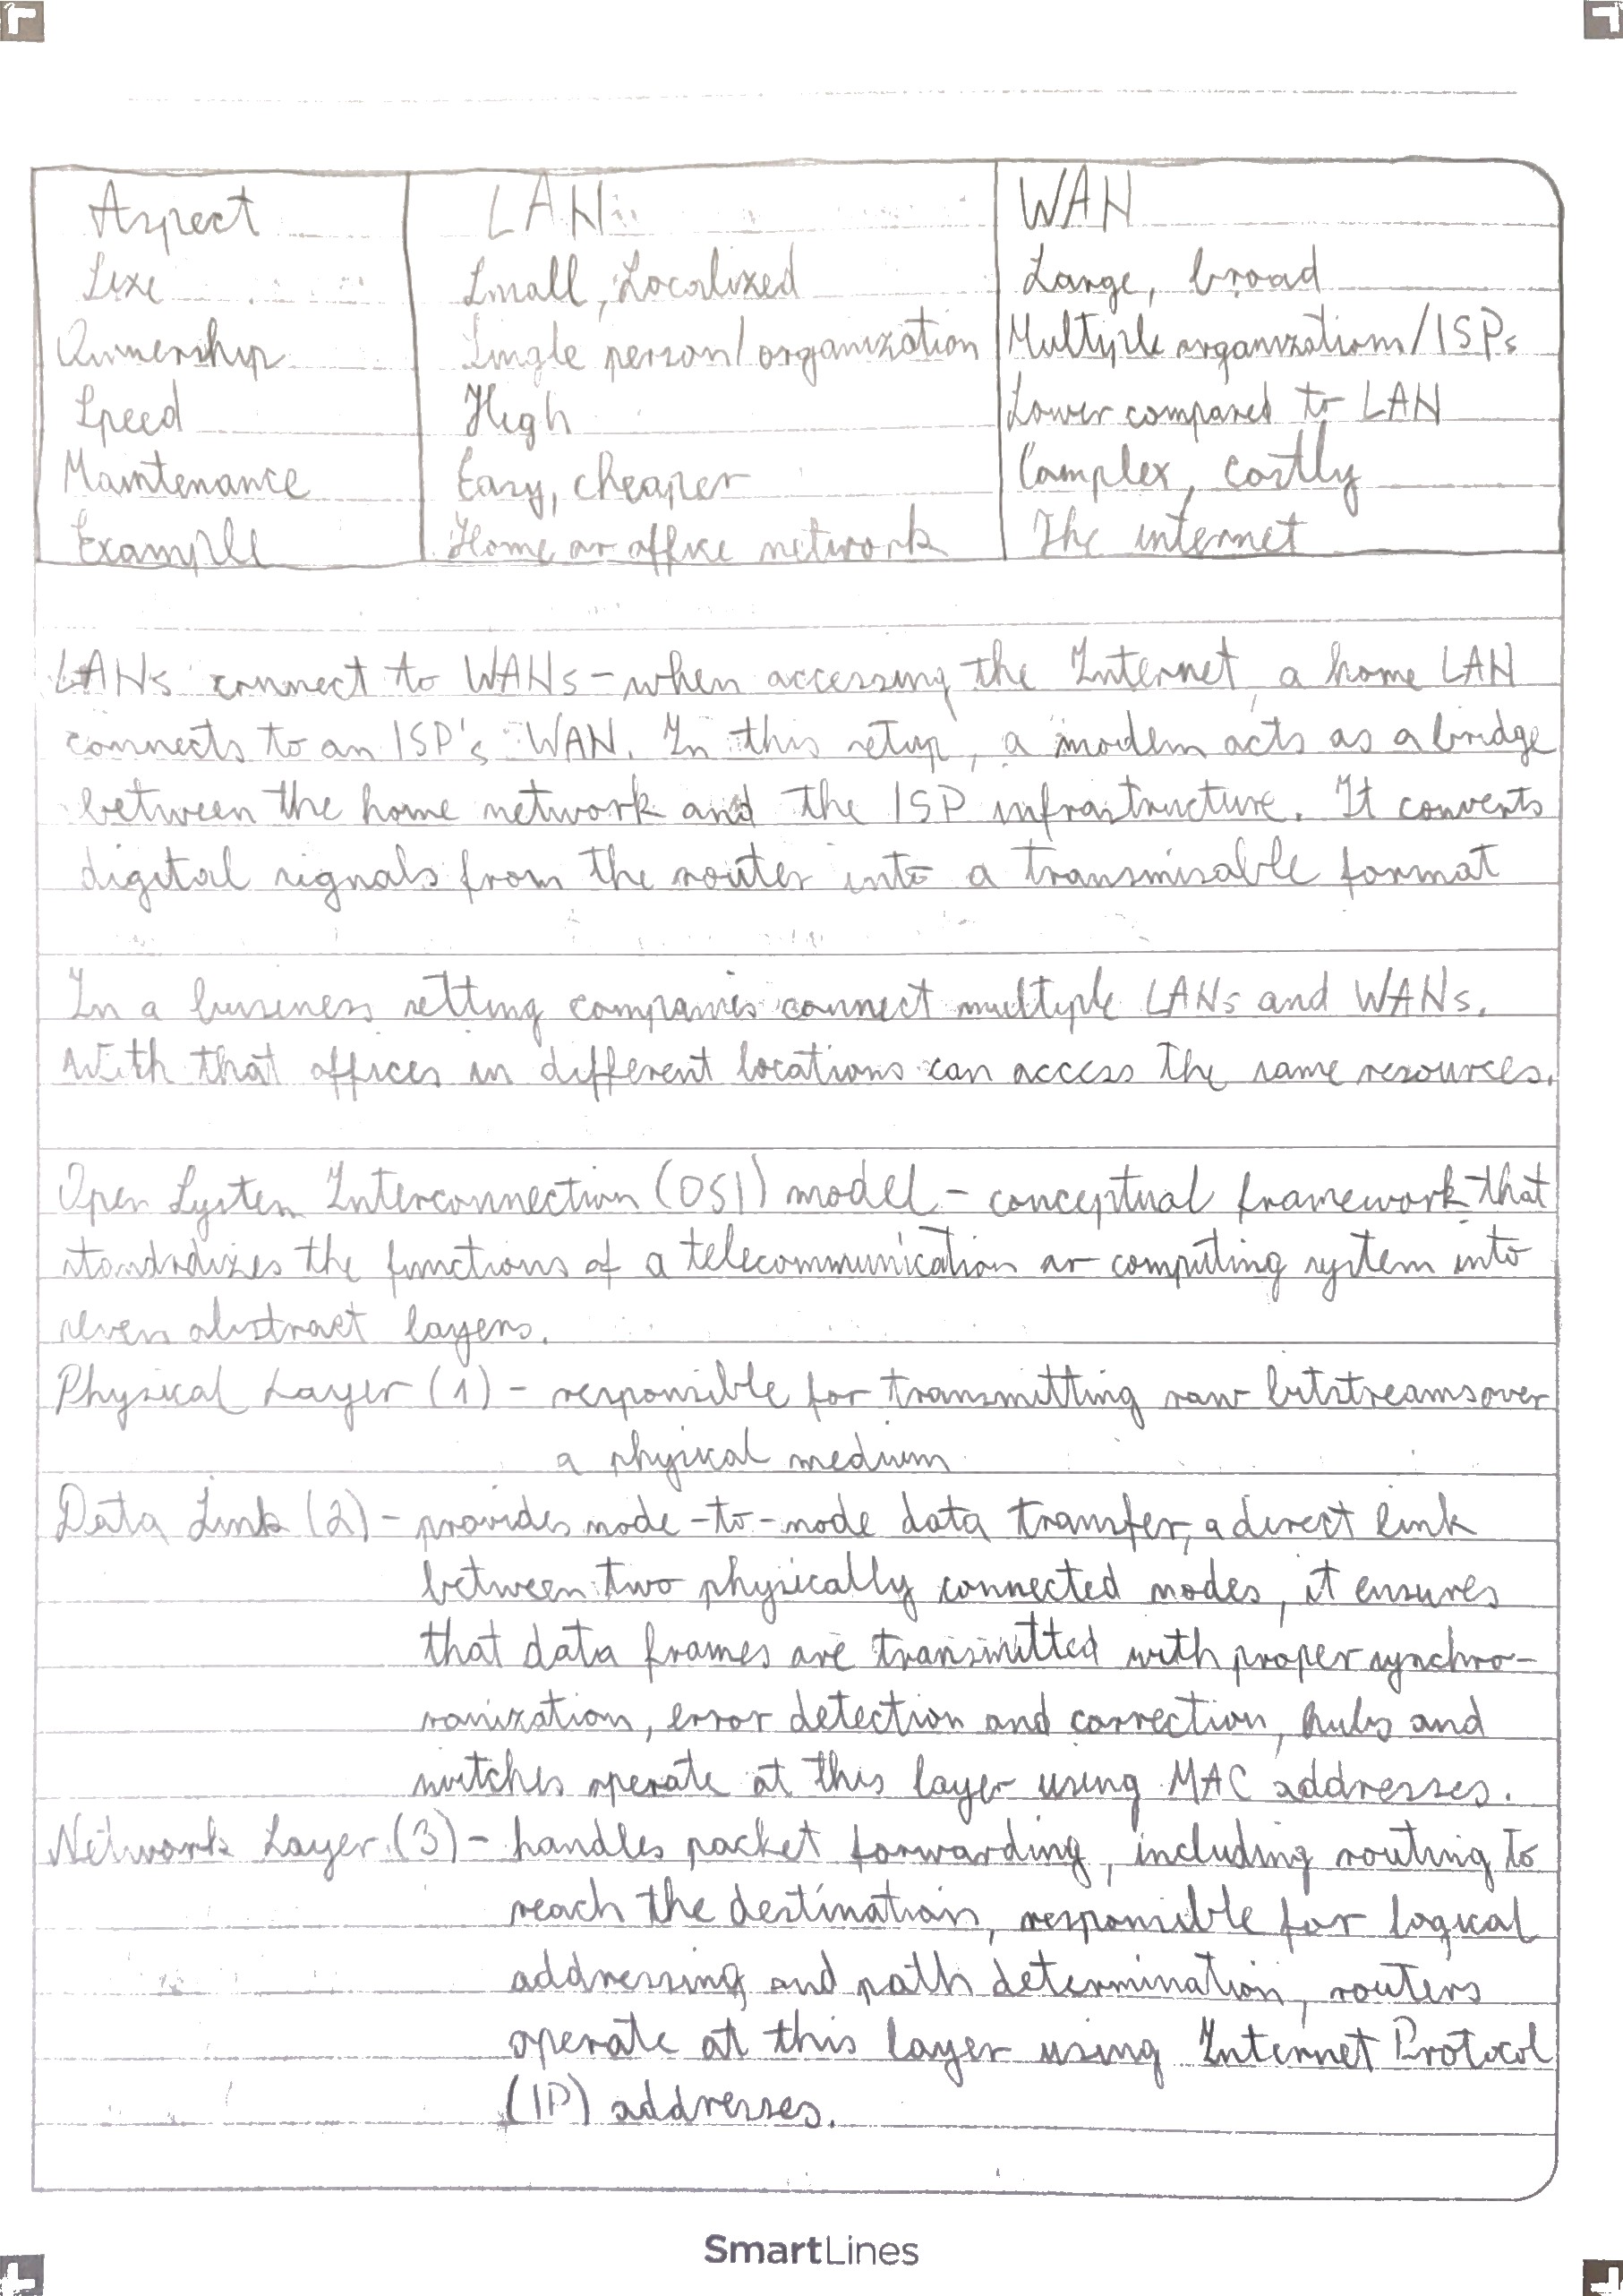 Aspect LAN WAN
Size Small, Localized Large, broad
Ownership Single person/organization Multiple organizations/ISPs
Speed High Lower compared to LAN
Maintenance Easy, cheaper Complex, costly
Example Home or office network The internet
LANs connect to WANs - when accessing the Internet, a home LAN
connects to an ISP's WAN. In this setup, a modem acts as a bridge
between the home network and the ISP infrastructure. It converts
digital signals from the router into a transmisable format
In a business setting companies connect multiple LANs and WANs.
With that offices in different locations can access the same resources.
Open System Interconnection (OSI) model - conceptual framework that
standrdizes the functions of a telecommunication or computing system into
seven abstract layers.
Physical Layer (1) - responsible for transmitting raw bitstreams over
a physical medium
Data Link (2) - provides node-to-node data transfer, a direct link
between two physically connected nodes, it ensures
that data frames are transmitted with proper synchro-
ronization, error detection and correction, hubs and
switches operate at this layer using MAC addresses.
Network Layer (3) - handles packet forwarding, including routing to
reach the destination, responsible for logical
addressing and path determination, routers
operate at this layer using Internet Protocol
(IP) addresses.
SmartLines